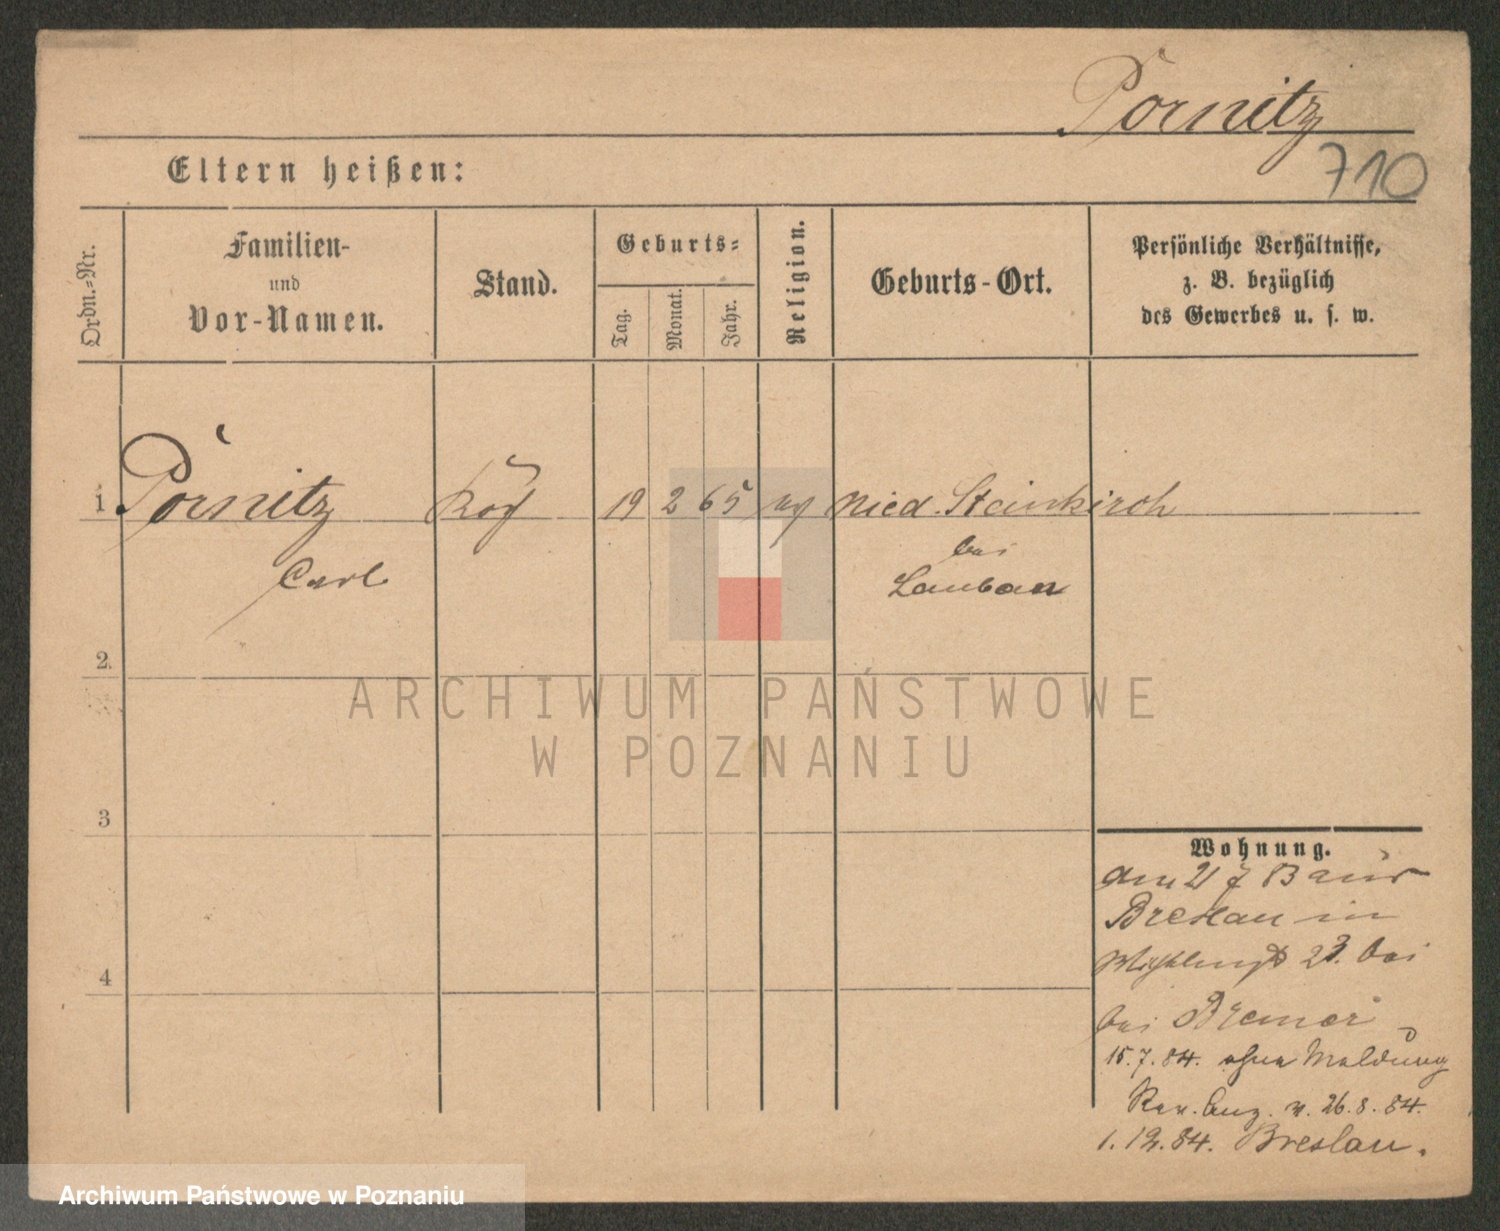 Pornitz
710
Eltern heißen:
Ordn.-Nr.
Familien-
und
Vor-Namen.
Stand.
Geburts-
Tag.
Monat.
Jahr.
Religion.
Geburts-Ort.
Persönliche Verhältnisse,
z. B. bezüglich
des Gewerbes u. s. w.
1 Pornitz 19 2 65 Nied. Steinkirch
Carl bei
Lauban
2.
3
4
Wohnung.
Breslau in
23. bei
bei Bremer
15.7.84. ohne Meldung
Rev. Anz. v. 26.8.84.
1.12.84. Breslau.
ARCHIWUM PAŃSTWOWE
W POZNANIU
Archiwum Państwowe w Poznaniu